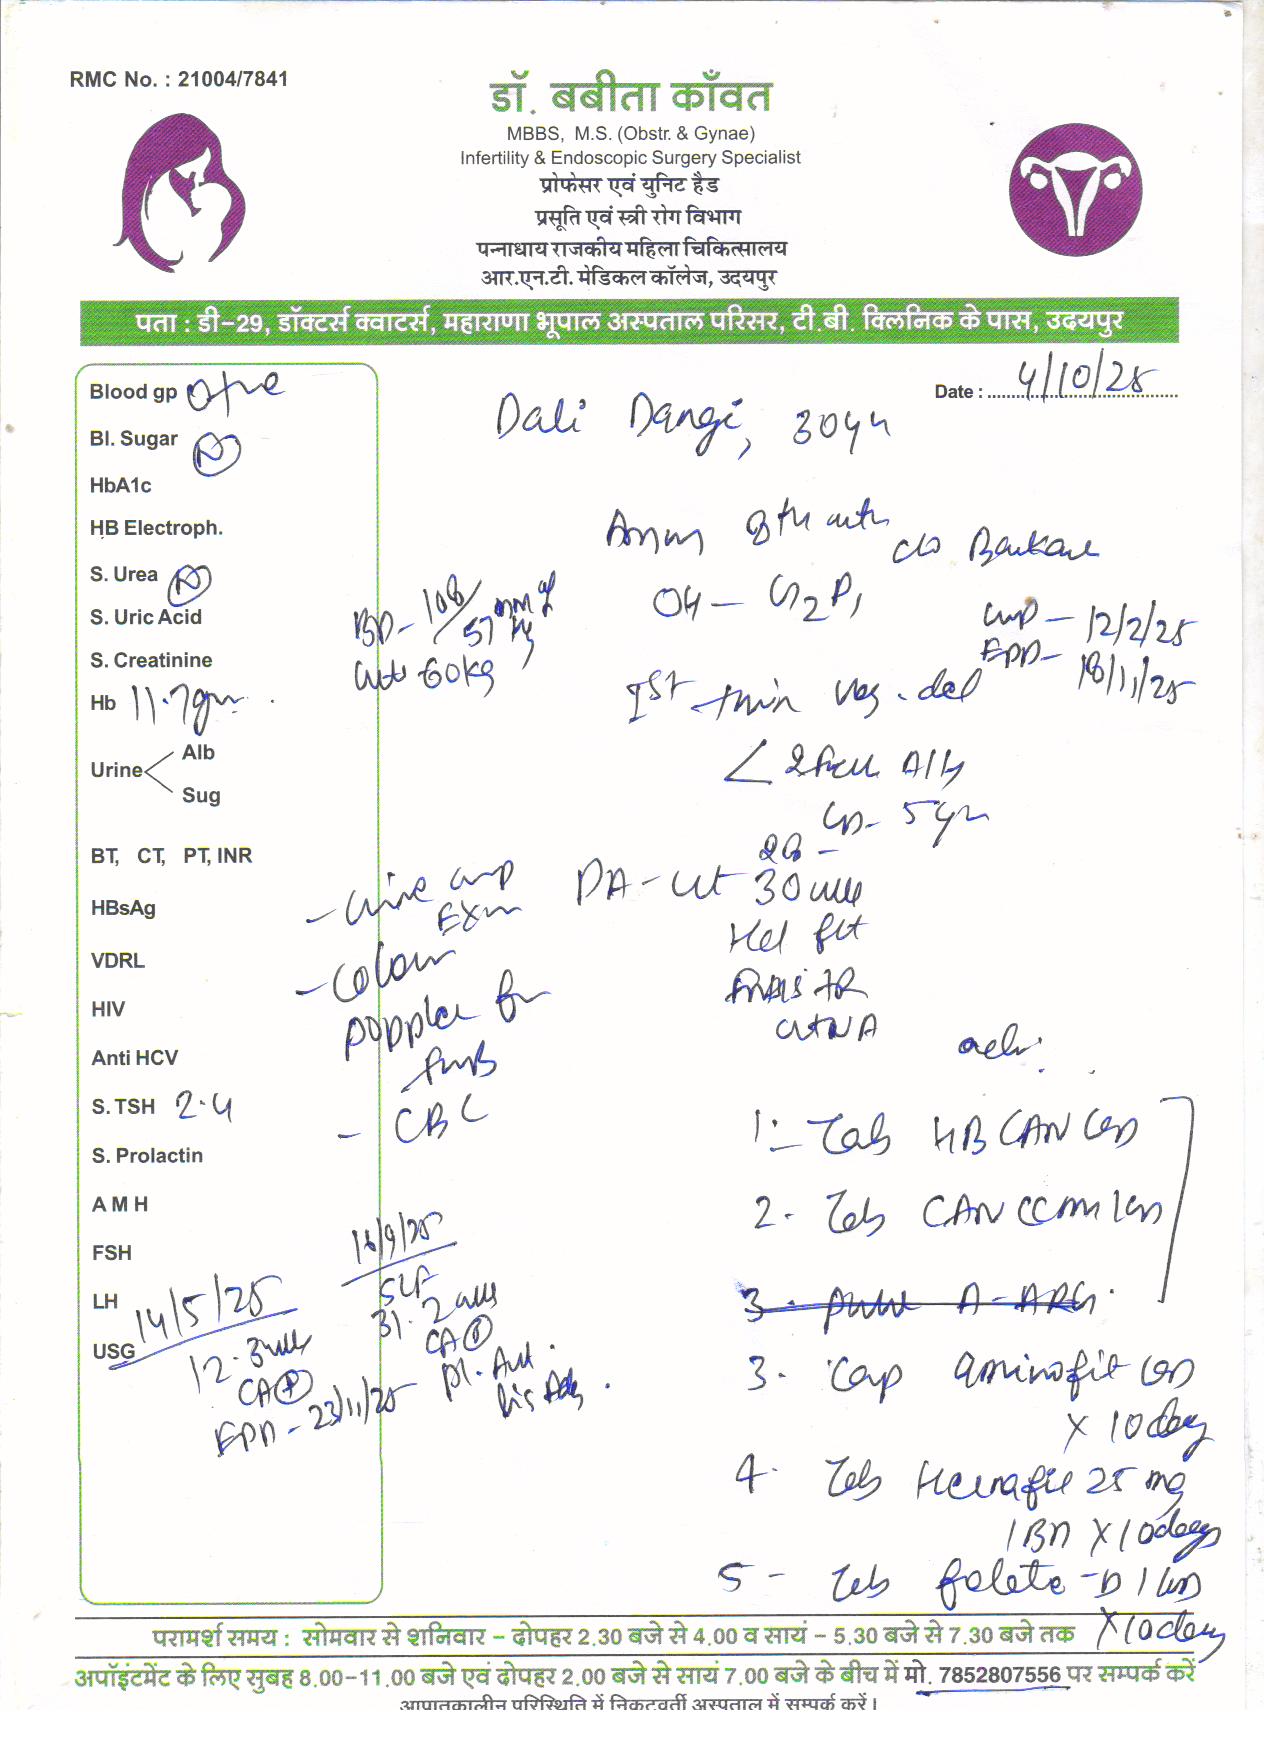 RMC No. : 21004/7841
डॉ. बबीता काँवत
MBBS, M.S. (Obstr. & Gynae)
Infertility & Endoscopic Surgery Specialist
प्रोफेसर एवं युनिट हैड
प्रसूति एवं स्त्री रोग विभाग
पन्नाधाय राजकीय महिला चिकित्सालय
आर.एन.टी. मेडिकल कॉलेज, उदयपुर
पता : डी-29, डॉक्टर्स क्वाटर्स, महाराणा भूपाल अस्पताल परिसर, टी.बी. क्लिनिक के पास, उदयपुर
Date : 4/10/25
Dali Dangi, 30yr
Blood gp O+ve
Bl. Sugar N
HbA1c
HB Electroph.
S. Urea N
S. Uric Acid
S. Creatinine
Hb 11.7gm
Urine
Alb
Sug
BT, CT, PT, INR
HBsAg
VDRL
HIV
Anti HCV
S. TSH 2.4
S. Prolactin
A M H
FSH
LH
USG 14/5/25
EDD - 23/11/25
16/9/25
SLF
BP - 108/57 mm Hg
wt 60kg
8th mth
c/o Backache
OH - G2P1
LMP - 12/2/25
EDD - 18/11/25
Ist twin vag. del
5yr
PA - ut 30 wks
- Urine
- Colour
Doppler for
FWB
- CBC
adv.
1. Tab HB CAN
2. Tab CAN
3.
3. Cap aminofit OD
X 10 day
4. Tab 25 mg
1 BD X 10 days
5 - Tab folate-D 1 OD
X 10 day
परामर्श समय : सोमवार से शनिवार – दोपहर 2.30 बजे से 4.00 व सायं – 5.30 बजे से 7.30 बजे तक
अपॉइंटमेंट के लिए सुबह 8.00-11.00 बजे एवं दोपहर 2.00 बजे से सायं 7.00 बजे के बीच में मो. 7852807556 पर सम्पर्क करें
आपातकालीन परिस्थिति में निकटवर्ती अस्पताल में सम्पर्क करें।